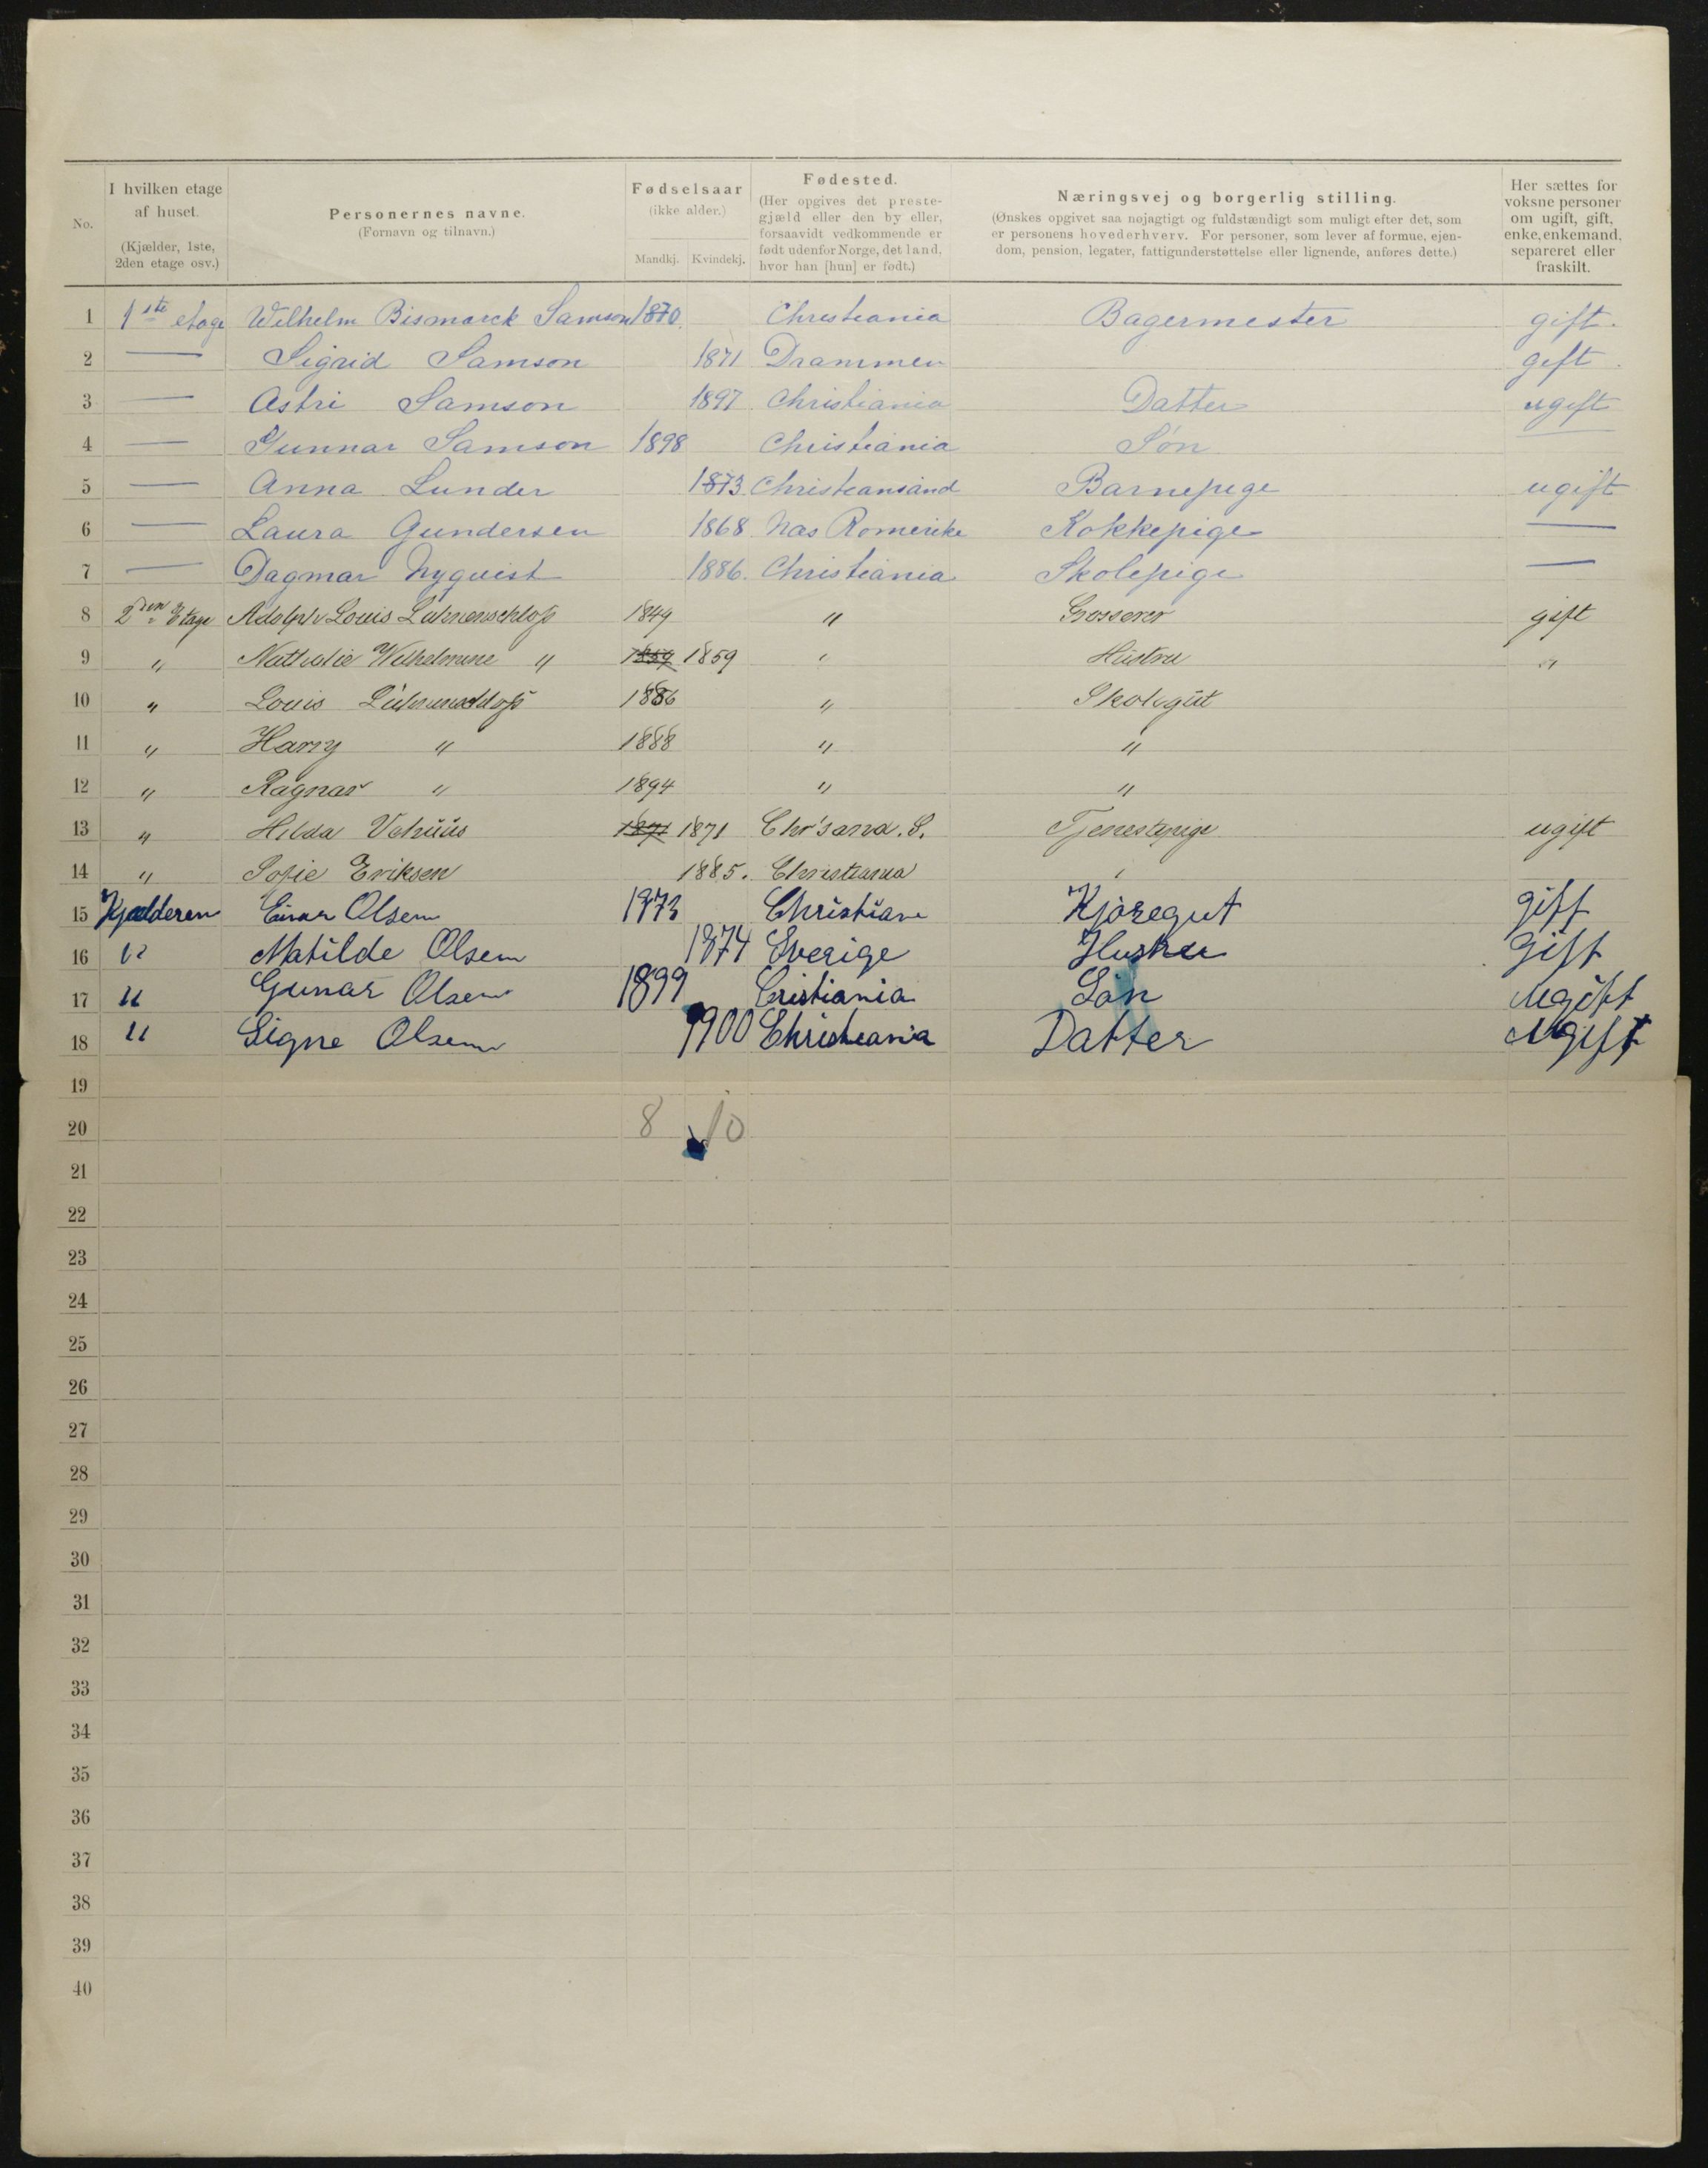 No. | I hvilken etage af huset. (Kjælder, 1ste, 2den etage osv.) | Personernes navne. (Fornavn og tilnavn.) | Fødselsaar (ikke alder.) Mandkj. Kvindekj. | Fødested. (Her opgives det prestegjæld eller den by eller, forsaavidt vedkommende er født udenfor Norge, det land, hvor han [hun] er født.) | Næringsvej og borgerlig stilling. (Ønskes opgivet saa nøjagtigt og fuldstændigt som muligt efter det, som er personens hovederhverv. For personer, som lever af formue, ejendom, pension, legater, fattigunderstøttelse eller lignende, anføres dette.) | Her sættes for voksne personer om ugift, gift, enke, enkemand, separeret eller fraskilt.
1 1ste etage Wilhelm Bismarck Samson 1870. Christiania Bagermester gift.
2 — Sigrid Samson 1871 Drammen gift.
3 — Astri Samson 1897 Christiania Datter ugift
4 — Gunnar Samson 1898 Christiania Søn —
5 — Anna Lunder 1873. Christiansand Barnepige ugift
6 — Laura Gundersen 1868 Næs Romerike Kokkepige —
7 — Dagmar Nyquist 1886. Christiania Skolepige —
8 2den Etage Adolph Louis Lühnenschloß 1849 " Grosserer gift
9 " Nathalie Wilhelmine " 1859 1859 " Hüstru "
10 " Louis Lühnenschloß 1886 " Skolegüt
11 " Harry " 1888 " "
12 " Ragnar " 1894 " "
13 " Hilda 1871 1871 Chr'sand. S. Tjenestepige ugift
14 " Sofie Eriksen 1885. Christiania "
15 Kjælderen Einar Olsen 1873 Christian Kjøregut gift
16 " Matilde Olsen 1874 Sverige Hustru Gift
17 " Gunar Olsen 1899 Cristiania Søn Ugift
18 " Signe Olsen 1900 Christiania Datter Ugift
19
20 8 10
21
22
23
24
25
26
27
28
29
30
31
32
33
34
35
36
37
38
39
40